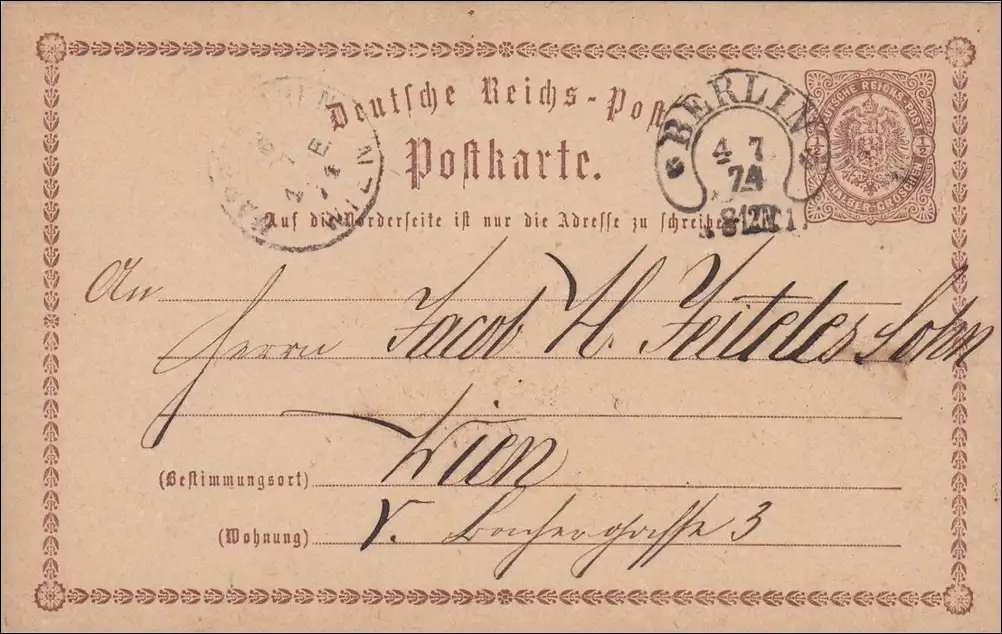 Deutsche Reichs-Post
Postkarte.
BERLIN
4 7
74
DEUTSCHE REICHS-POST
1/2
EIN HALBER GROSCHEN
6 7 E
74
WIEN
Auf die Vorderseite ist nur die Adresse zu schreiben.
An
Herrn Jacob H. Jeiteles Sohn
Wien
(Bestimmungsort)
(Wohnung) V. Bachergasse 3